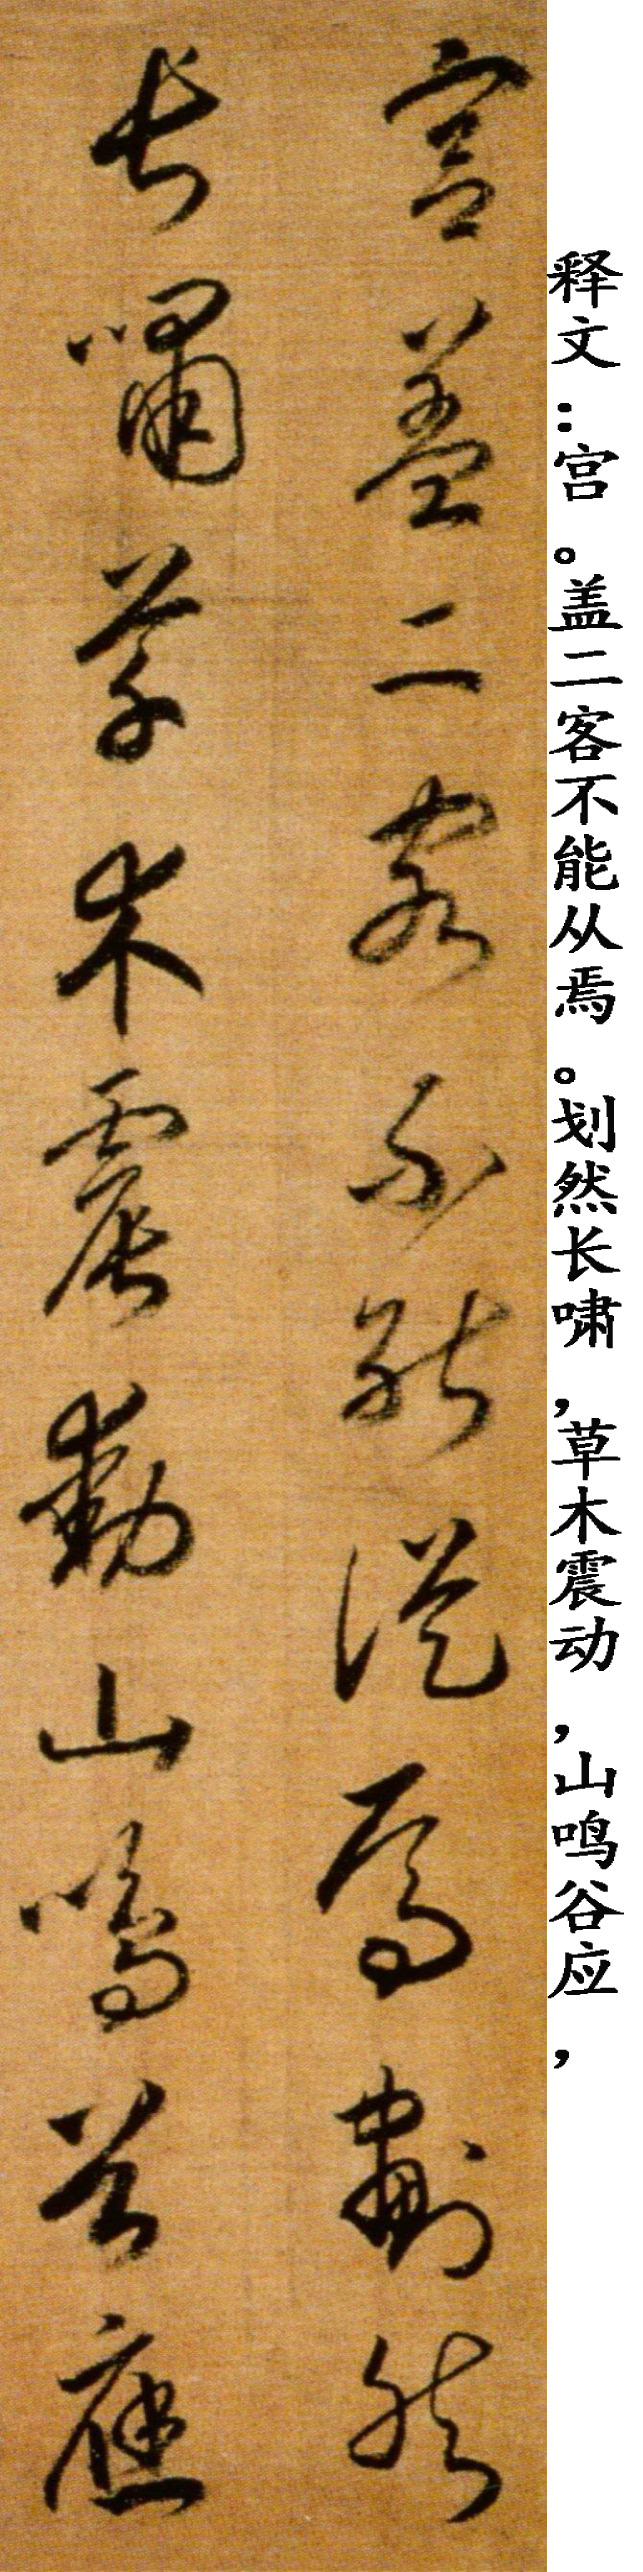 释文:宫。盖二客不能从焉。划然长啸,草木震动,山鸣谷应,
宫盖二客不能從焉劃然
長嘯草木震動山鳴谷應